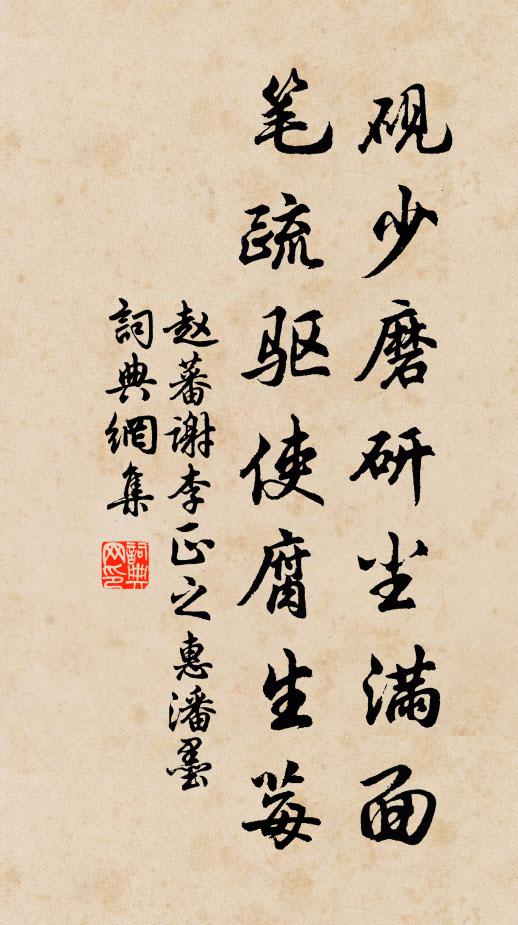 砚少磨研尘满面
笔疏驱使腐生莓
赵蕃谢李正之惠潘墨
詞典網集
詞典网印